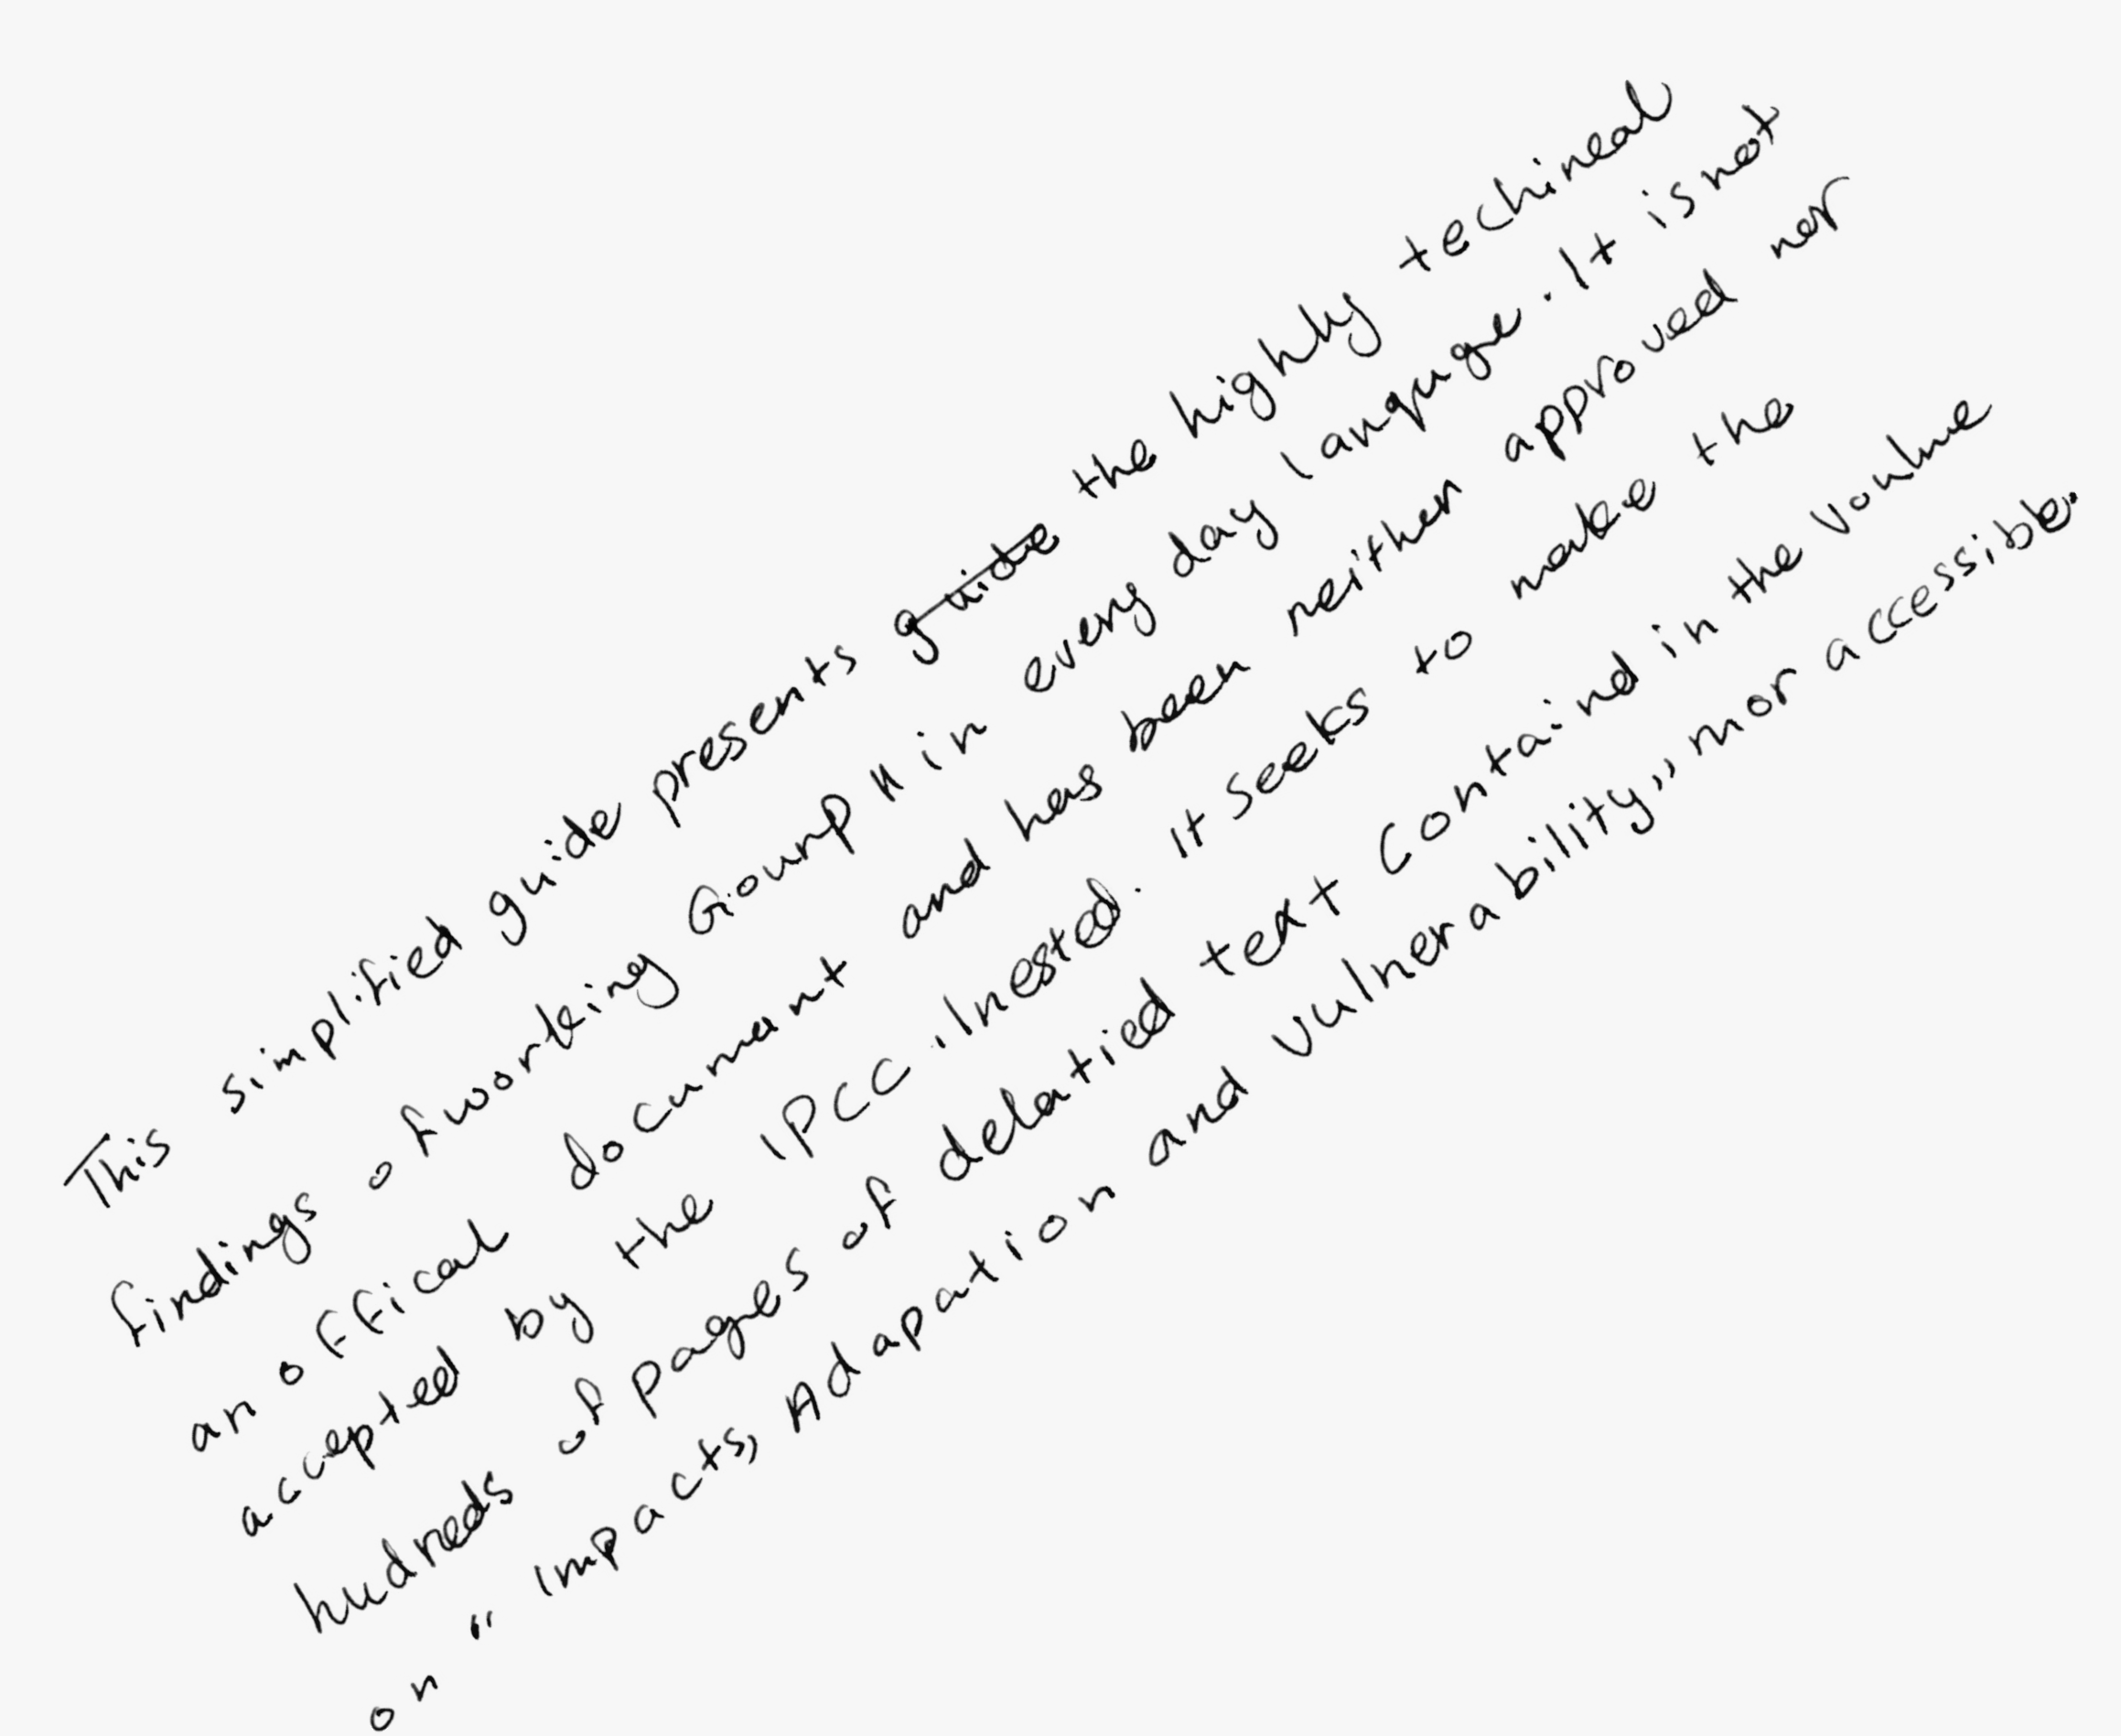 This simplified guide presents guide the highly techineal
findings of working Gourp II in every day languge. It is not
an offical document and has been neither approved nor
accepted by the IPCC. Inested. It seeks to make the
hudreds of pages of delatied text containd in the Voulme
on "Impacts, Adapation and Vulnerability," mor accessible.